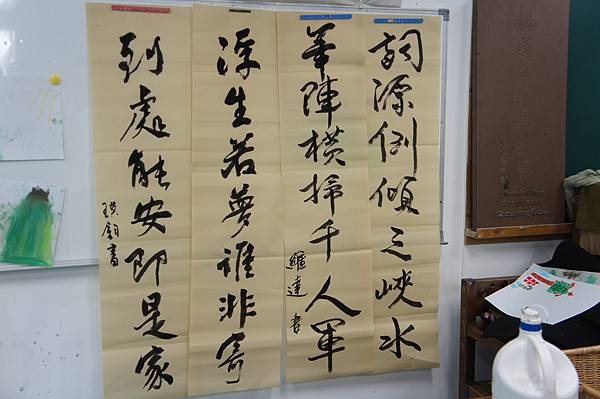 詞源倒傾三峽水
筆陣橫掃千人軍
羅達書
浮生若夢誰非寄
到處能安即是家